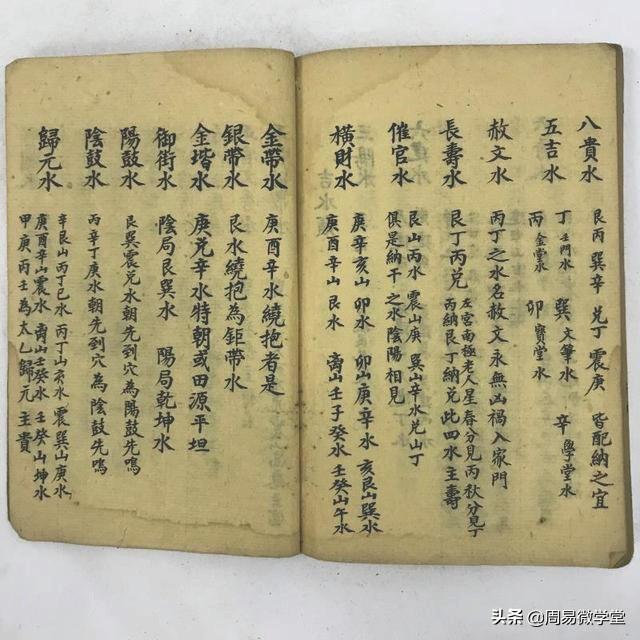 八貴水 艮丙 巽辛 兑丁 震庚 皆配納之宜
五吉水 丁 壬門水 巽 文筆水 辛 學堂水
丙 金堂水 卯 寶堂水
赦文水 丙丁之水名赦文水無凶禍入家門
長壽水 艮丁丙兑 左宮南極老人星春分見丙秋分見丁
丙納艮丁納兑此四水主壽
催官水 艮山丙水 震山庚 巽山辛水兑山丁
俱是納干之水陰陽相見
橫財水 庚辛亥山 卯水 卯山庚辛水 亥艮山巽水
庚酉辛山 艮水 离山壬子癸水 壬癸山午水
金帶水 庚酉辛水繞抱者是
銀帶水 艮水繞抱為鉅帶水
金堦水 庚兑辛水特朝或田源平坦
御街水 陰局艮巽水 陽局乾坤水
陽鼓水 艮巽震兑水朝先到穴為陽鼓先鳴
陰鼓水 丙辛丁庚水朝先到穴為陰鼓先鳴
歸元水 辛艮山丙丁巳水 丙丁山亥水 震巽山庚水
庚酉辛山震水 离山壬癸水 壬癸山坤水
甲庚丙壬為太乙歸元主貴
头条 @周易微学堂